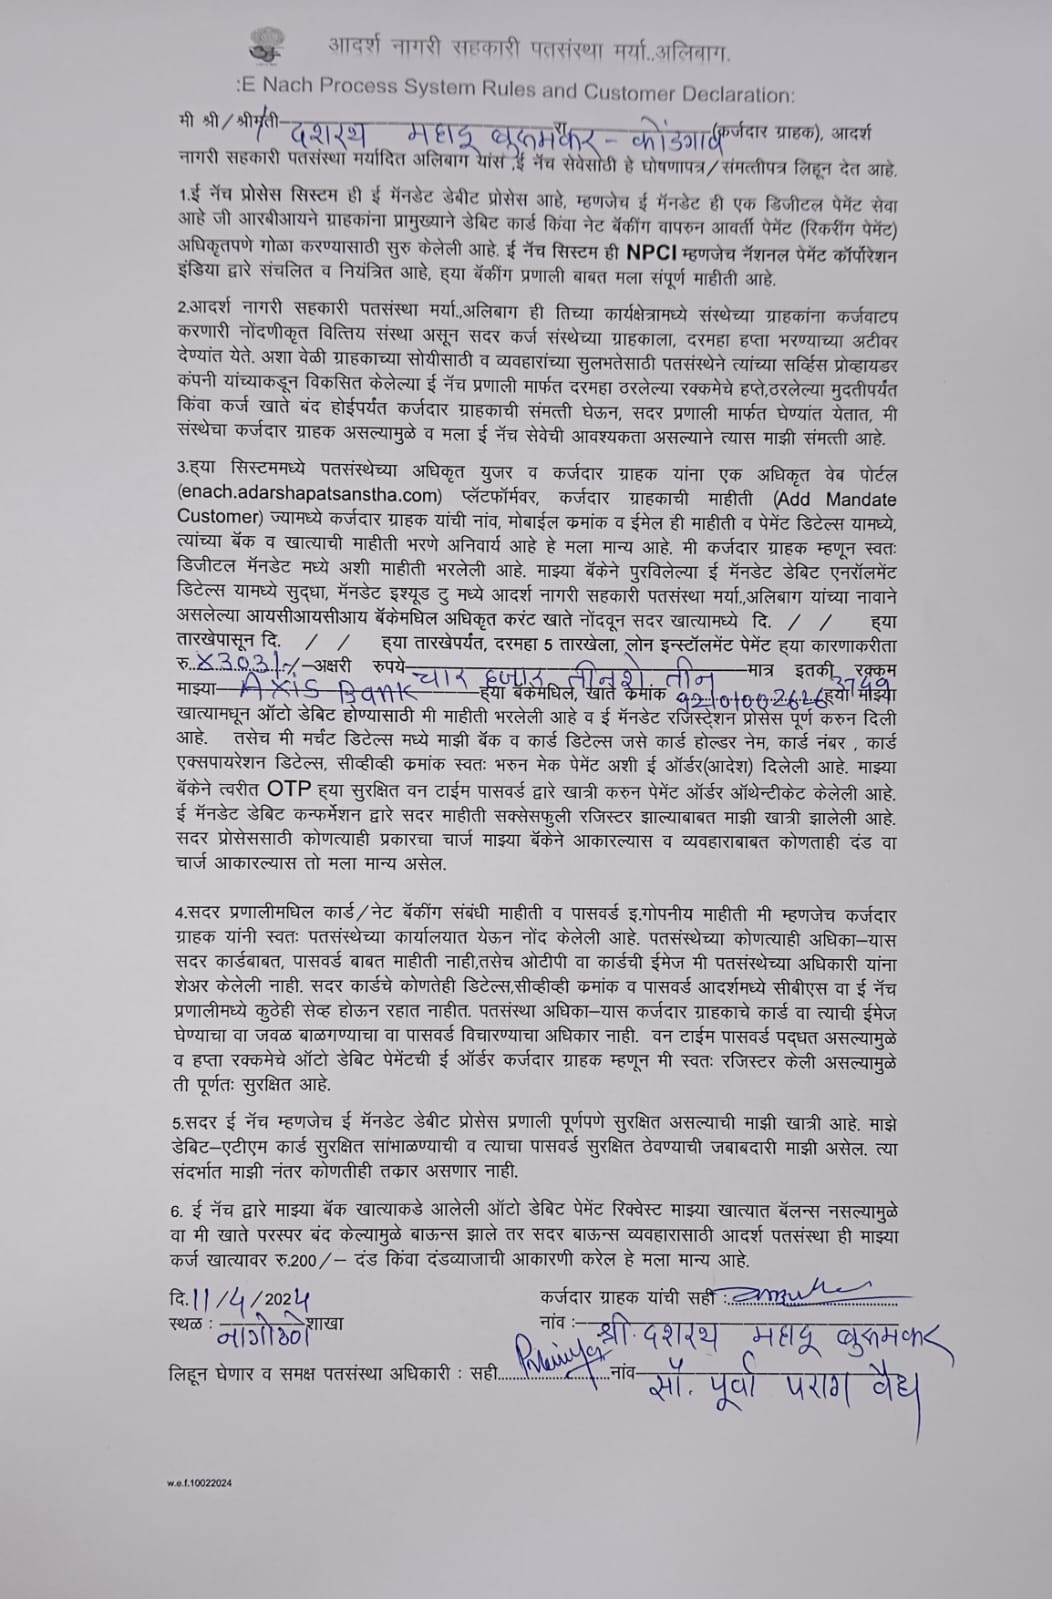 आदर्श नागरी सहकारी पतसंस्था मर्या..अलिबाग.
:E Nach Process System Rules and Customer Declaration:
मी श्री/श्रीमती दशरथ महादू बुरुमकर - कोंडगाव (कर्जदार ग्राहक), आदर्श
नागरी सहकारी पतसंस्था मर्यादित अलिबाग यांस ,ई नॅच सेवेसाठी हे घोषणापत्र/संमत्तीपत्र लिहून देत आहे.
1.ई नॅच प्रोसेस सिस्टम ही ई मॅनडेट डेबीट प्रोसेस आहे, म्हणजेच ई मॅनडेट ही एक डिजीटल पेमेंट सेवा
आहे जी आरबीआयने ग्राहकांना प्रामुख्याने डेबिट कार्ड किंवा नेट बॅकींग वापरुन आवर्ती पेमेंट (रिकरींग पेमेंट)
अधिकृतपणे गोळा करण्यासाठी सुरु केलेली आहे. ई नॅच सिस्टम ही NPCI म्हणजेच नॅशनल पेमेंट कॉर्पोरेशन
इंडिया द्वारे संचलित व नियंत्रित आहे, ह्या बॅकींग प्रणाली बाबत मला संपूर्ण माहीती आहे.
2.आदर्श नागरी सहकारी पतसंस्था मर्या.,अलिबाग ही तिच्या कार्यक्षेत्रामध्ये संस्थेच्या ग्राहकांना कर्जवाटप
करणारी नोंदणीकृत वित्तिय संस्था असून सदर कर्ज संस्थेच्या ग्राहकाला, दरमहा हप्ता भरण्याच्या अटीवर
देण्यांत येते. अशा वेळी ग्राहकाच्या सोयीसाठी व व्यवहारांच्या सुलभतेसाठी पतसंस्थेने त्यांच्या सर्व्हिस प्रोव्हायडर
कंपनी यांच्याकडून विकसित केलेल्या ई नॅच प्रणाली मार्फत दरमहा ठरलेल्या रक्कमेचे हप्ते,ठरलेल्या मुदतीपर्यंत
किंवा कर्ज खाते बंद होईपर्यंत कर्जदार ग्राहकाची संमत्ती घेऊन, सदर प्रणाली मार्फत घेण्यांत येतात, मी
संस्थेचा कर्जदार ग्राहक असल्यामुळे व मला ई नॅच सेवेची आवश्यकता असल्याने त्यास माझी संमत्ती आहे.
3.ह्या सिस्टममध्ये पतसंस्थेच्या अधिकृत युजर व कर्जदार ग्राहक यांना एक अधिकृत वेब पोर्टल
(enach.adarshapatsanstha.com) प्लॅटफॉर्मवर, कर्जदार ग्राहकाची माहीती (Add Mandate
Customer) ज्यामध्ये कर्जदार ग्राहक यांची नांव, मोबाईल क्रमांक व ईमेल ही माहीती व पेमेंट डिटेल्स यामध्ये,
त्यांच्या बॅक व खात्याची माहीती भरणे अनिवार्य आहे हे मला मान्य आहे. मी कर्जदार ग्राहक म्हणून स्वतः
डिजीटल मॅनडेट मध्ये अशी माहीती भरलेली आहे. माझ्या बॅकेने पुरविलेल्या ई मॅनडेट डेबिट एनरॉलमेंट
डिटेल्स यामध्ये सुद्धा, मॅनडेट इश्यूड टु मध्ये आदर्श नागरी सहकारी पतसंस्था मर्या.,अलिबाग यांच्या नावाने
असलेल्या आयसीआयसीआय बॅकेमधिल अधिकृत करंट खाते नोंदवून सदर खात्यामध्ये दि. / / ह्या
तारखेपासून दि. / / ह्या तारखेपर्यंत, दरमहा 5 तारखेला, लोन इन्स्टॉलमेंट पेमेंट ह्या कारणाकरीता
रु..x3031/-/–अक्षरी रुपये चार हजार तीनशे तीन मात्र इतकी रक्कम
माझ्या Axis Bank ह्या बॅकेमधिल, खाते क्रमांक 921010026263749 ह्या माझ्या
खात्यामधून ऑटो डेबिट होण्यासाठी मी माहीती भरलेली आहे व ई मॅनडेट रजिस्ट्रेशन प्रोसेस पूर्ण करुन दिली
आहे. तसेच मी मर्चंट डिटेल्स मध्ये माझी बॅक व कार्ड डिटेल्स जसे कार्ड होल्डर नेम, कार्ड नंबर , कार्ड
एक्सपायरेशन डिटेल्स, सीव्हीव्ही क्रमांक स्वतः भरुन मेक पेमेंट अशी ई ऑर्डर(आदेश) दिलेली आहे. माझ्या
बॅकेने त्वरीत OTP ह्या सुरक्षित वन टाईम पासवर्ड द्वारे खात्री करुन पेमेंट ऑर्डर ऑथेन्टीकेट केलेली आहे.
ई मॅनडेट डेबिट कन्फर्मेशन द्वारे सदर माहीती सक्सेसफुली रजिस्टर झाल्याबाबत माझी खात्री झालेली आहे.
सदर प्रोसेससाठी कोणत्याही प्रकारचा चार्ज माझ्या बॅकेने आकारल्यास व व्यवहाराबाबत कोणताही दंड वा
चार्ज आकारल्यास तो मला मान्य असेल.
4.सदर प्रणालीमधिल कार्ड/नेट बॅकींग संबंधी माहीती व पासवर्ड इ.गोपनीय माहीती मी म्हणजेच कर्जदार
ग्राहक यांनी स्वतः पतसंस्थेच्या कार्यालयात येऊन नोंद केलेली आहे. पतसंस्थेच्या कोणत्याही अधिका–यास
सदर कार्डबाबत, पासवर्ड बाबत माहीती नाही,तसेच ओटीपी वा कार्डची ईमेज मी पतसंस्थेच्या अधिकारी यांना
शेअर केलेली नाही. सदर कार्डचे कोणतेही डिटेल्स,सीव्हीव्ही क्रमांक व पासवर्ड आदर्शमध्ये सीबीएस वा ई नॅच
प्रणालीमध्ये कुठेही सेव्ह होऊन रहात नाहीत. पतसंस्था अधिका–यास कर्जदार ग्राहकाचे कार्ड वा त्याची ईमेज
घेण्याचा वा जवळ बाळगण्याचा वा पासवर्ड विचारण्याचा अधिकार नाही. वन टाईम पासवर्ड पद्धत असल्यामुळे
व हप्ता रक्कमेचे ऑटो डेबिट पेमेंटची ई ऑर्डर कर्जदार ग्राहक म्हणून मी स्वतः रजिस्टर केली असल्यामुळे
ती पूर्णतः सुरक्षित आहे.
5.सदर ई नॅच म्हणजेच ई मॅनडेट डेबीट प्रोसेस प्रणाली पूर्णपणे सुरक्षित असल्याची माझी खात्री आहे. माझे
डेबिट–एटीएम कार्ड सुरक्षित सांभाळण्याची व त्याचा पासवर्ड सुरक्षित ठेवण्याची जबाबदारी माझी असेल. त्या
संदर्भात माझी नंतर कोणतीही तक्रार असणार नाही.
6. ई नॅच द्वारे माझ्या बॅक खात्याकडे आलेली ऑटो डेबिट पेमेंट रिक्वेस्ट माझ्या खात्यात बॅलन्स नसल्यामुळे
वा मी खाते परस्पर बंद केल्यामुळे बाऊन्स झाले तर सदर बाऊन्स व्यवहारासाठी आदर्श पतसंस्था ही माझ्या
कर्ज खात्यावर रु.200/– दंड किंवा दंडव्याजाची आकारणी करेल हे मला मान्य आहे.
दि.11/4/2024 कर्जदार ग्राहक यांची सही :
स्थळ : नागोठणे शाखा नांव :- श्री. दशरथ महादू बुरुमकर
लिहून घेणार व समक्ष पतसंस्था अधिकारी : सही नांव सौ. पूर्वा पराग वैद्य
w.e.f.10022024